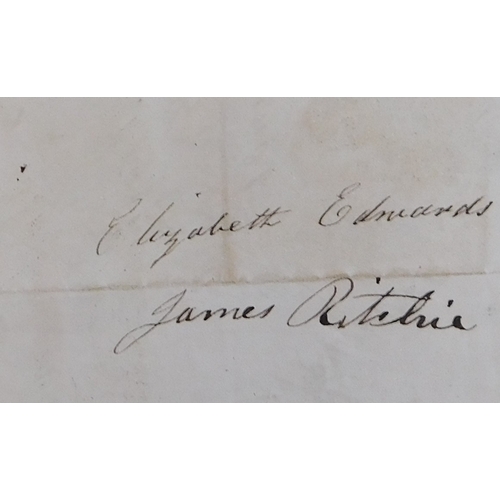 Elizabeth Edwards
James Ritchie